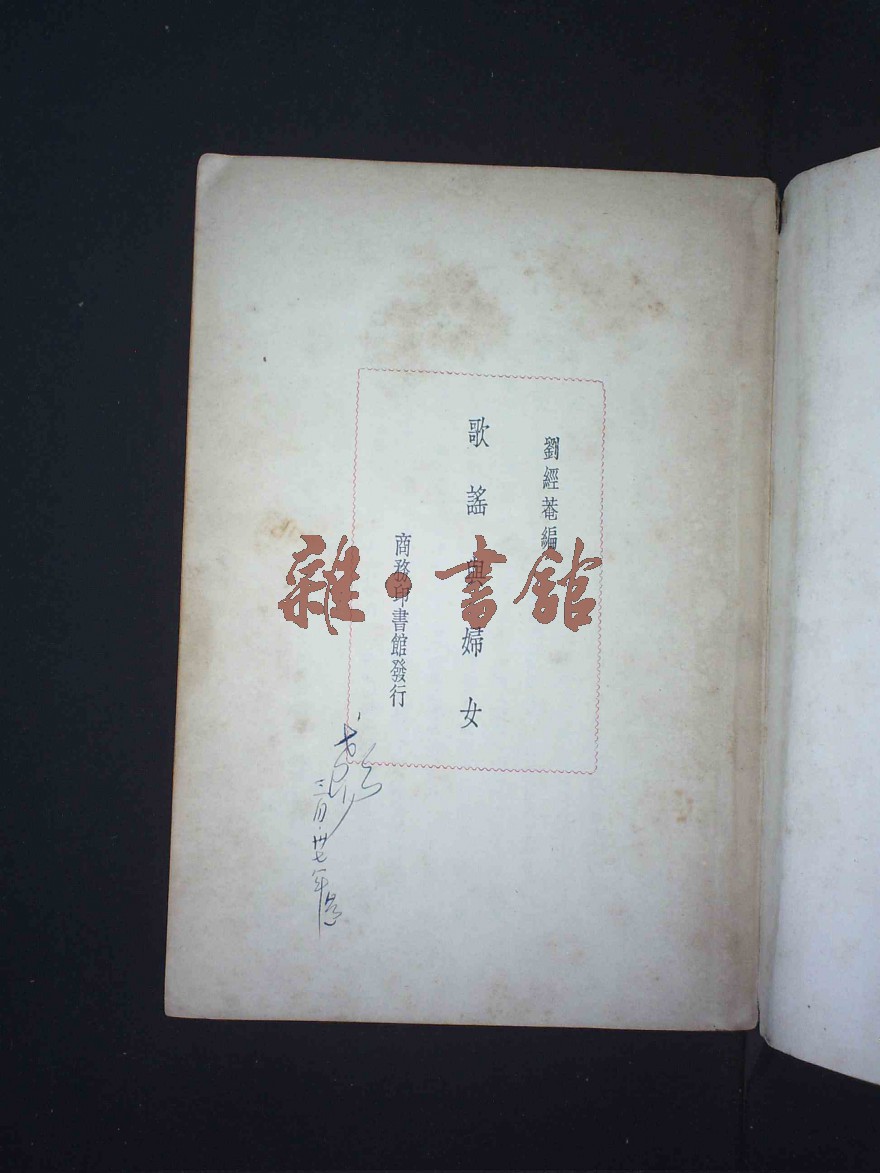 劉經菴編
歌謠與婦女
商務印書館發行
三月·卅七年
雜·書館